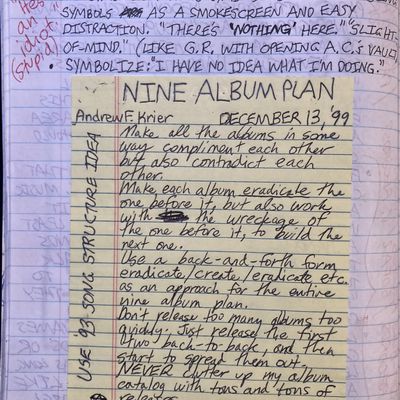 "Hes
an
idiot.
(stupid)
SYMBOLS AS A SMOKESCREEN AND EASY
DISTRACTION. "THERE'S 'NOTHING' HERE." "SLIGHT-
OF-MIND." (LIKE G.R. WITH OPENING A.C.'s VAULT)
• SYMBOLIZE: "I HAVE NO IDEA WHAT I'M DOING."
NINE ALBUM PLAN
Andrew F. Krier DECEMBER 13, '99
Make all the albums in some
way compliment each other
but also contradict each
other.
Make each album eradicate the
one before it, but also work
with the wreckage of
the one before it, to build the
next one.
Use a back-and-forth form
eradicate/create/eradicate etc.
as an approach for the entire
nine album plan.
Don't release too many albums too
quickly. Just release the first
two back-to-back, and then
start to spread them out.
NEVER clutter up my album
catalog with tons and tons of
USE '93 SONG STRUCTURE IDEA